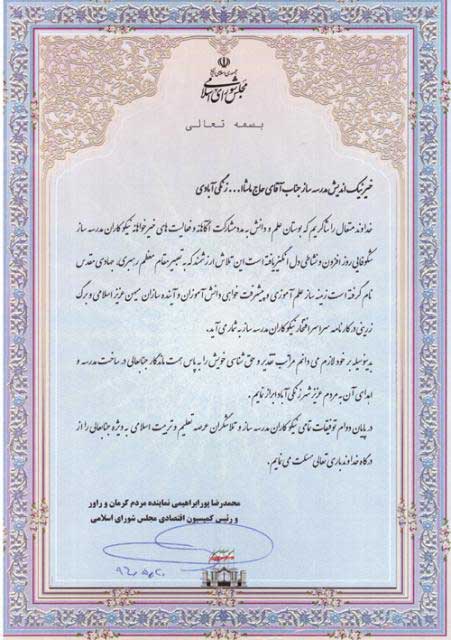 جمهوری اسلامی ایران
مجلس شورای اسلامی
بسمه تعالی
خیر نیک اندیش مدرسه ساز جناب آقای حاج ماشاا... زنگی آبادی
خداوند متعال را شاکریم که بوستان علم و دانش به مدد مشارکت آگاهانه و فعالیت های خیرخواهانه نیکوکاران مدرسه ساز
شکوفایی روز افزون و نشاطی دل انگیز یافته است این تلاش ارزشمند که به تعبیر مقام معظم رهبری، جهادی مقدس
نام گرفته است زمینه ساز علم آموزی و پیشرفت خواهی دانش آموزان و آینده سازان میهن عزیز اسلامی و برگ
زرینی در کارنامه سراسر افتخار نیکوکاران مدرسه ساز به شمار می آید.
بدینوسیله بر خود لازم می دانم مراتب تقدیر و حق شناسی خویش را به پاس همت ماندگار جنابعالی در ساخت مدرسه و
اهدای آن به مردم عزیز شهر زنگی آباد ابراز نمایم.
در پایان دوام توفیقات تمامی نیکوکاران مدرسه ساز و تلاشگران عرصه تعلیم و تربیت اسلامی به ویژه جنابعالی را از
درگاه خداوند باری تعالی مسئلت می نمایم.
محمدرضا پورابراهیمی نماینده مردم کرمان و راور
و رئیس کمیسیون اقتصادی مجلس شورای اسلامی